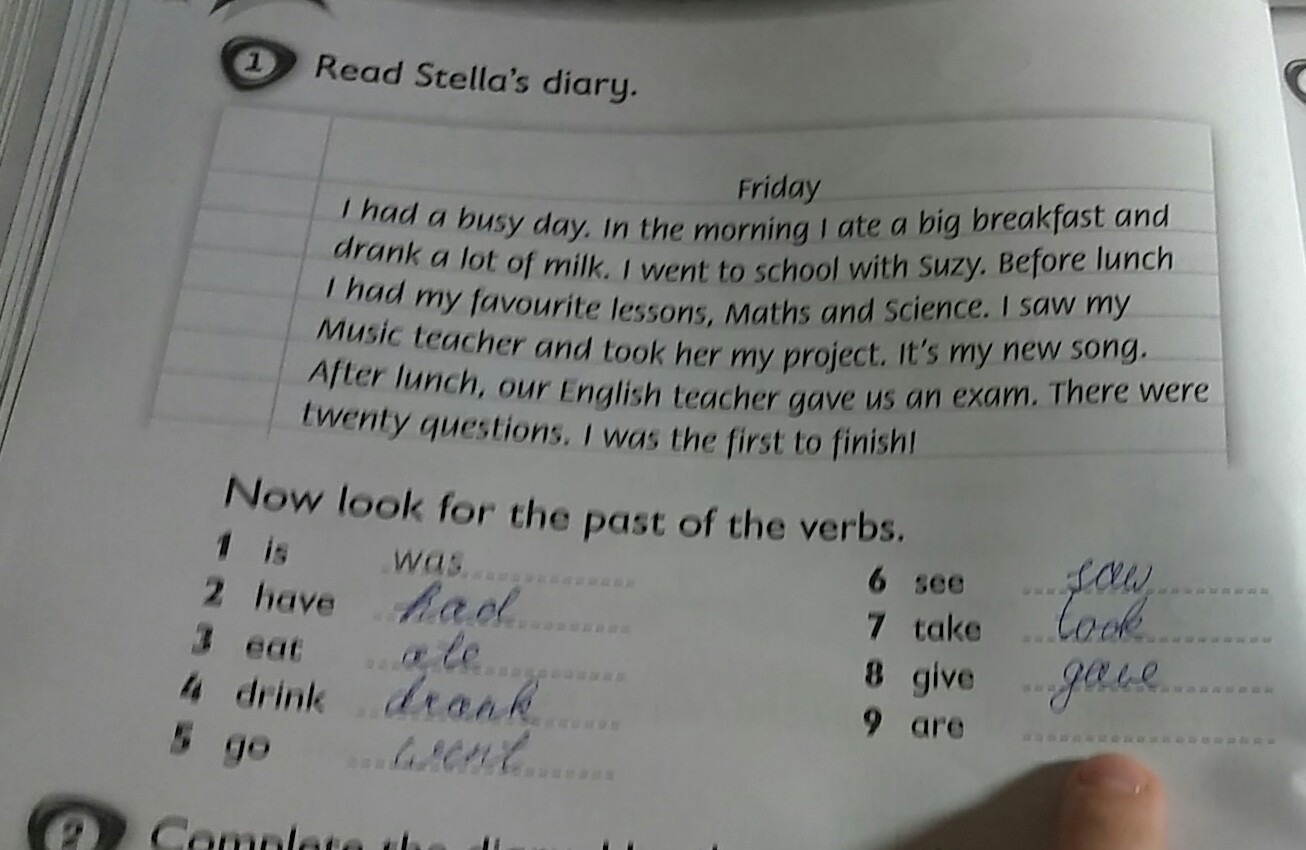 1 Read Stella's diary.
Friday
I had a busy day. In the morning I ate a big breakfast and
drank a lot of milk. I went to school with Suzy. Before lunch
I had my favourite lessons, Maths and Science. I saw my
Music teacher and took her my project. It's my new song.
After lunch, our English teacher gave us an exam. There were
twenty questions. I was the first to finish!
Now look for the past of the verbs.
1 is was
2 have had
3 eat ate
4 drink drank
5 go went
6 see saw
7 take took
8 give gave
9 are
2 Complete the